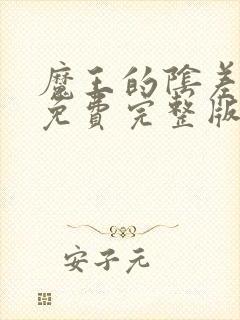 魔王的陰差
免費完整版
安子元